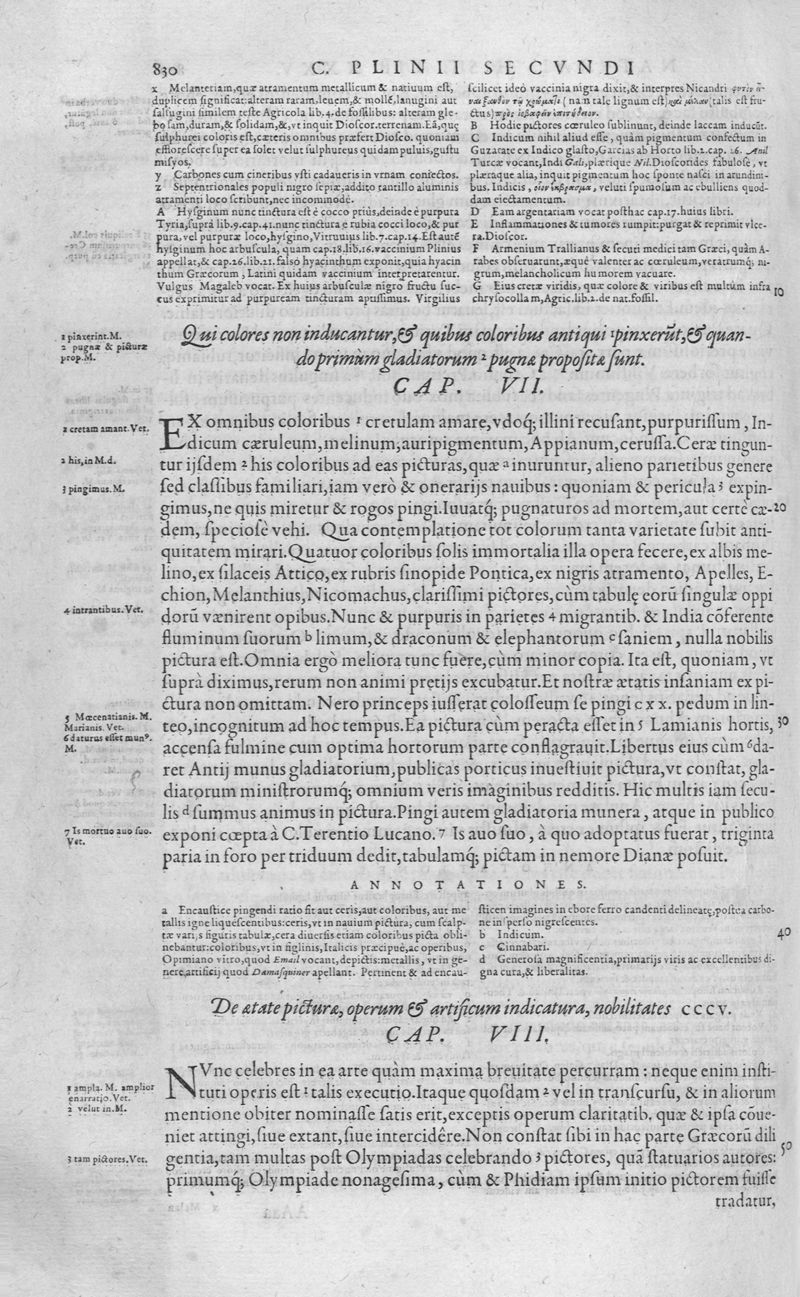 830
C. PLINII SECVNDI
x Melanteriam,quæ atramentum metallicum & natiuum est,
duplicem significat:alteram raram,leuem,& mollé,lanugini aut
salsugini similem teste Agricola lib.4.de fossilibus: alteram gle-
bosam,duram,& solidam,&,vt inquit Dioscor.terrenam.Eā,quę
sulphurei coloris est,cæteris omnibus præfert Diosco. quoniam
efflorescere super ea solet velut sulphureus quidam puluis,gustu
misyos.
y Carbones cum cineribus vsti cadaueris in vrnam coniectos.
z Septentrionales populi nigro sepiæ,addito tantillo aluminis
atramenti loco scribunt,nec incommodè.
A Hysginum nunc tinctura est è cocco priùs,deinde è purpura
Tyria,suprà lib.9.cap.41.nunc tinctura è rubia cocci loco,& pur
pura,vel purpuræ loco,hysgino,Vitruuius lib.7.cap.14.Est autē
hysginum hoc arbuscula, quam cap.18.lib.16.vaccinium Plinius
appellat,& cap.26.lib.21.falso hyacinthum exponit,quia hyacin
thum Græcorum , Latini quidam vaccinium interpretarentur.
Vulgus Magaleb vocat.Ex huius arbusculæ nigro fructu suc-
cus exprimitur ad purpuream tincturam aptissimus. Virgilius
scilicet ideò vaccinia nigra dixit,& interpres Nicandri
(nam tale lignum est) (talis est fru-
ctus)
B Hodie pictores cœruleo sublinunt, deinde laccam inducūt.
C Indicum nihil aliud esse , quàm pigmentum confectum in
Guzarate ex Indico glasto,Garcias ab Horto lib.2.cap. 26. Anil
Turcæ vocant,Indi Gali,plærique Nil.Dioscorides fabulosè, vt
plæraque alia, inquit pigmentum hoc sponte nasci in arundini-
bus. Indicis , veluti spumosum ac ebulliens quod-
dam eiectamentum.
D Eam argentariam vocat posthac cap.17.huius libri.
E Inflammationes & tumores rumpit:purgat & reprimit vlce-
ra.Dioscor.
F Armenium Trallianus & secuti medici tam Græci, quàm A-
rabes obseruarunt,æquè valenter ac cœruleum,veratrumq́; ni-
grum,melancholicum humorem vacuare.
G Eius cretæ viridis, quæ colore & viribus est multùm infra
chrysocollam,Agric.lib.2.de nat.fossil.
10
1 pinxerint.M.
2 pugnæ & picturæ
prop.M.
Qui colores non inducantur,& quibus coloribus antiqui ¹pinxerūt,& quan-
do primùm gladiatorum ² pugna proposita sunt.
CAP. VII.
1 cretam amant.Vet.
2 his,in M.d.
3 pingimus.M.
EX omnibus coloribus ¹ cretulam amare,vdoq́; illini recusant,purpurissum , In-
dicum cæruleum,melinum,auripigmentum, Appianum,cerussa.Ceræ tingun-
tur ijsdem ² his coloribus ad eas picturas,quæ ª inuruntur, alieno parietibus genere
sed classibus familiari,iam verò & onerarijs nauibus : quoniam & pericula ³ expin-
gimus,ne quis miretur & rogos pingi.Iuuatq́; pugnaturos ad mortem,aut certè cæ-
20
dem, speciosè vehi. Qua contemplatione tot colorum tanta varietate subit anti-
quitatem mirari.Quatuor coloribus solis immortalia illa opera fecere,ex albis me-
lino,ex silaceis Attico,ex rubris sinopide Pontica,ex nigris atramento, Apelles, E-
chion,Melanthius,Nicomachus,clarissimi pictores,cùm tabulę eorū singulæ oppi
4 intrantibus.Vet.
dorū vænirent opibus.Nunc & purpuris in parietes ⁴ migrantib. & India cōferente
fluminum suorum ᵇ limum,& draconum & elephantorum ᶜ saniem , nulla nobilis
pictura est.Omnia ergò meliora tunc fuêre,cùm minor copia. Ita est, quoniam , vt
suprà diximus,rerum non animi pretijs excubatur.Et nostræ ætatis insaniam ex pi-
ctura non omittam. Nero princeps iusserat colosseum se pingi cxx. pedum in lin-
5 Mœcenatianis. M.
Marianis.Vet.
6 daturus esset munꝰ.
M.
teo,incognitum ad hoc tempus.Ea pictura cùm peracta esset in ⁵ Lamianis hortis,
30
accensa fulmine cum optima hortorum parte conflagrauit.Libertus eius cùm ⁶da-
ret Antij munus gladiatorium,publicas porticus inuestiuit pictura,vt constat, gla-
diatorum ministrorumq́; omnium veris imaginibus redditis. Hic multis iam secu-
lis ᵈ summus animus in pictura.Pingi autem gladiatoria munera , atque in publico
7 Is mortuo auo suo.
Vet.
exponi cœpta à C.Terentio Lucano.⁷ Is auo suo , à quo adoptatus fuerat , triginta
paria in foro per triduum dedit,tabulamq́; pictam in nemore Dianæ posuit.
ANNOTATIONES.
a Encaustice pingendi ratio fit aut ceris,aut coloribus, aut me
tallis igne liquescentibus:ceris,vt in nauium pictura, cum scalp-
tæ varijs figuris tabulæ,cera diuersis etiam coloribus picta obli-
nebantur:coloribus,vt in figlinis,Italicis præcipuè,ac operibus,
Opimiano vitro,quod Email vocant,depictis:metallis, vt in ge-
nere,artificij quod Damasquiner apellant. Pertinent & ad encau-
sticen imagines in ebore ferro candenti delineatę,postea carbo-
ne insperso nigrescentes.
b Indicum.
c Cinnabari.
d Generosa magnificentia,primarijs viris ac excellentibus di-
gna cura,& liberalitas.
40
De ætate picturæ, operum & artificum indicatura, nobilitates cccv.
CAP. VIII.
1 ampla. M. amplior
enarratio.Vet.
2 velut in.M.
3 tam pictores.Vet.
NVnc celebres in ea arte quàm maxima breuitate percurram : neque enim insti-
tuti operis est ¹ talis executio.Itaque quosdam ² vel in transcursu, & in aliorum
mentione obiter nominasse satis erit,exceptis operum claritatib. quæ & ipsa cōue-
niet attingi,siue extant,siue intercidêre.Non constat sibi in hac parte Græcorū dili
gentia,tam multas post Olympiadas celebrando ³ pictores, quā statuarios autores:
50
primumq́; Olympiade nonagesima , cùm & Phidiam ipsum initio pictorem fuisse
tradatur,